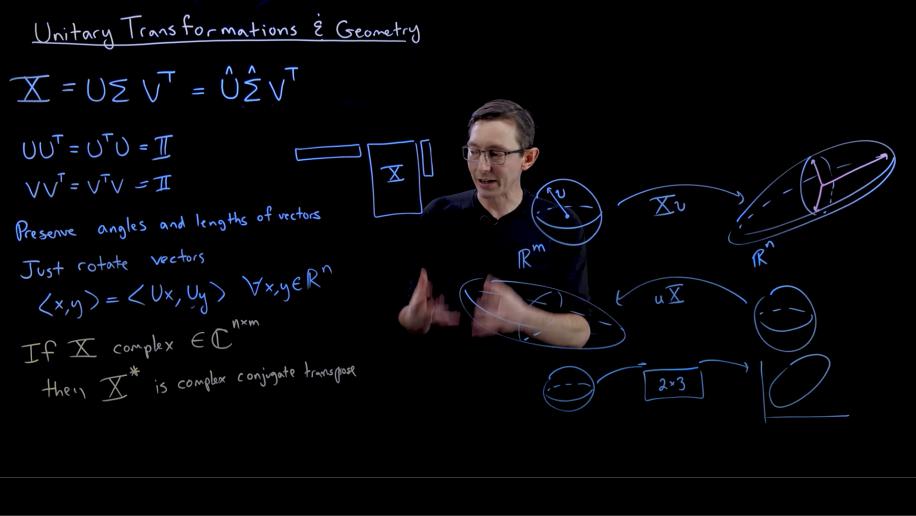 Unitary Transformations & Geometry
X = UΣV^T = ÛΣ̂V^T
UU^T = U^TU = I
VV^T = V^TV = I
Preserve angles and lengths of vectors
Just rotate vectors
⟨x,y⟩ = ⟨Ux, Uy⟩ ∀x,y∈ℝ^n
If X complex ∈ ℂ^{n×m}
then X* is complex conjugate transpose
X
v
Xv
ℝ^m
ℝ^n
uX
2×3